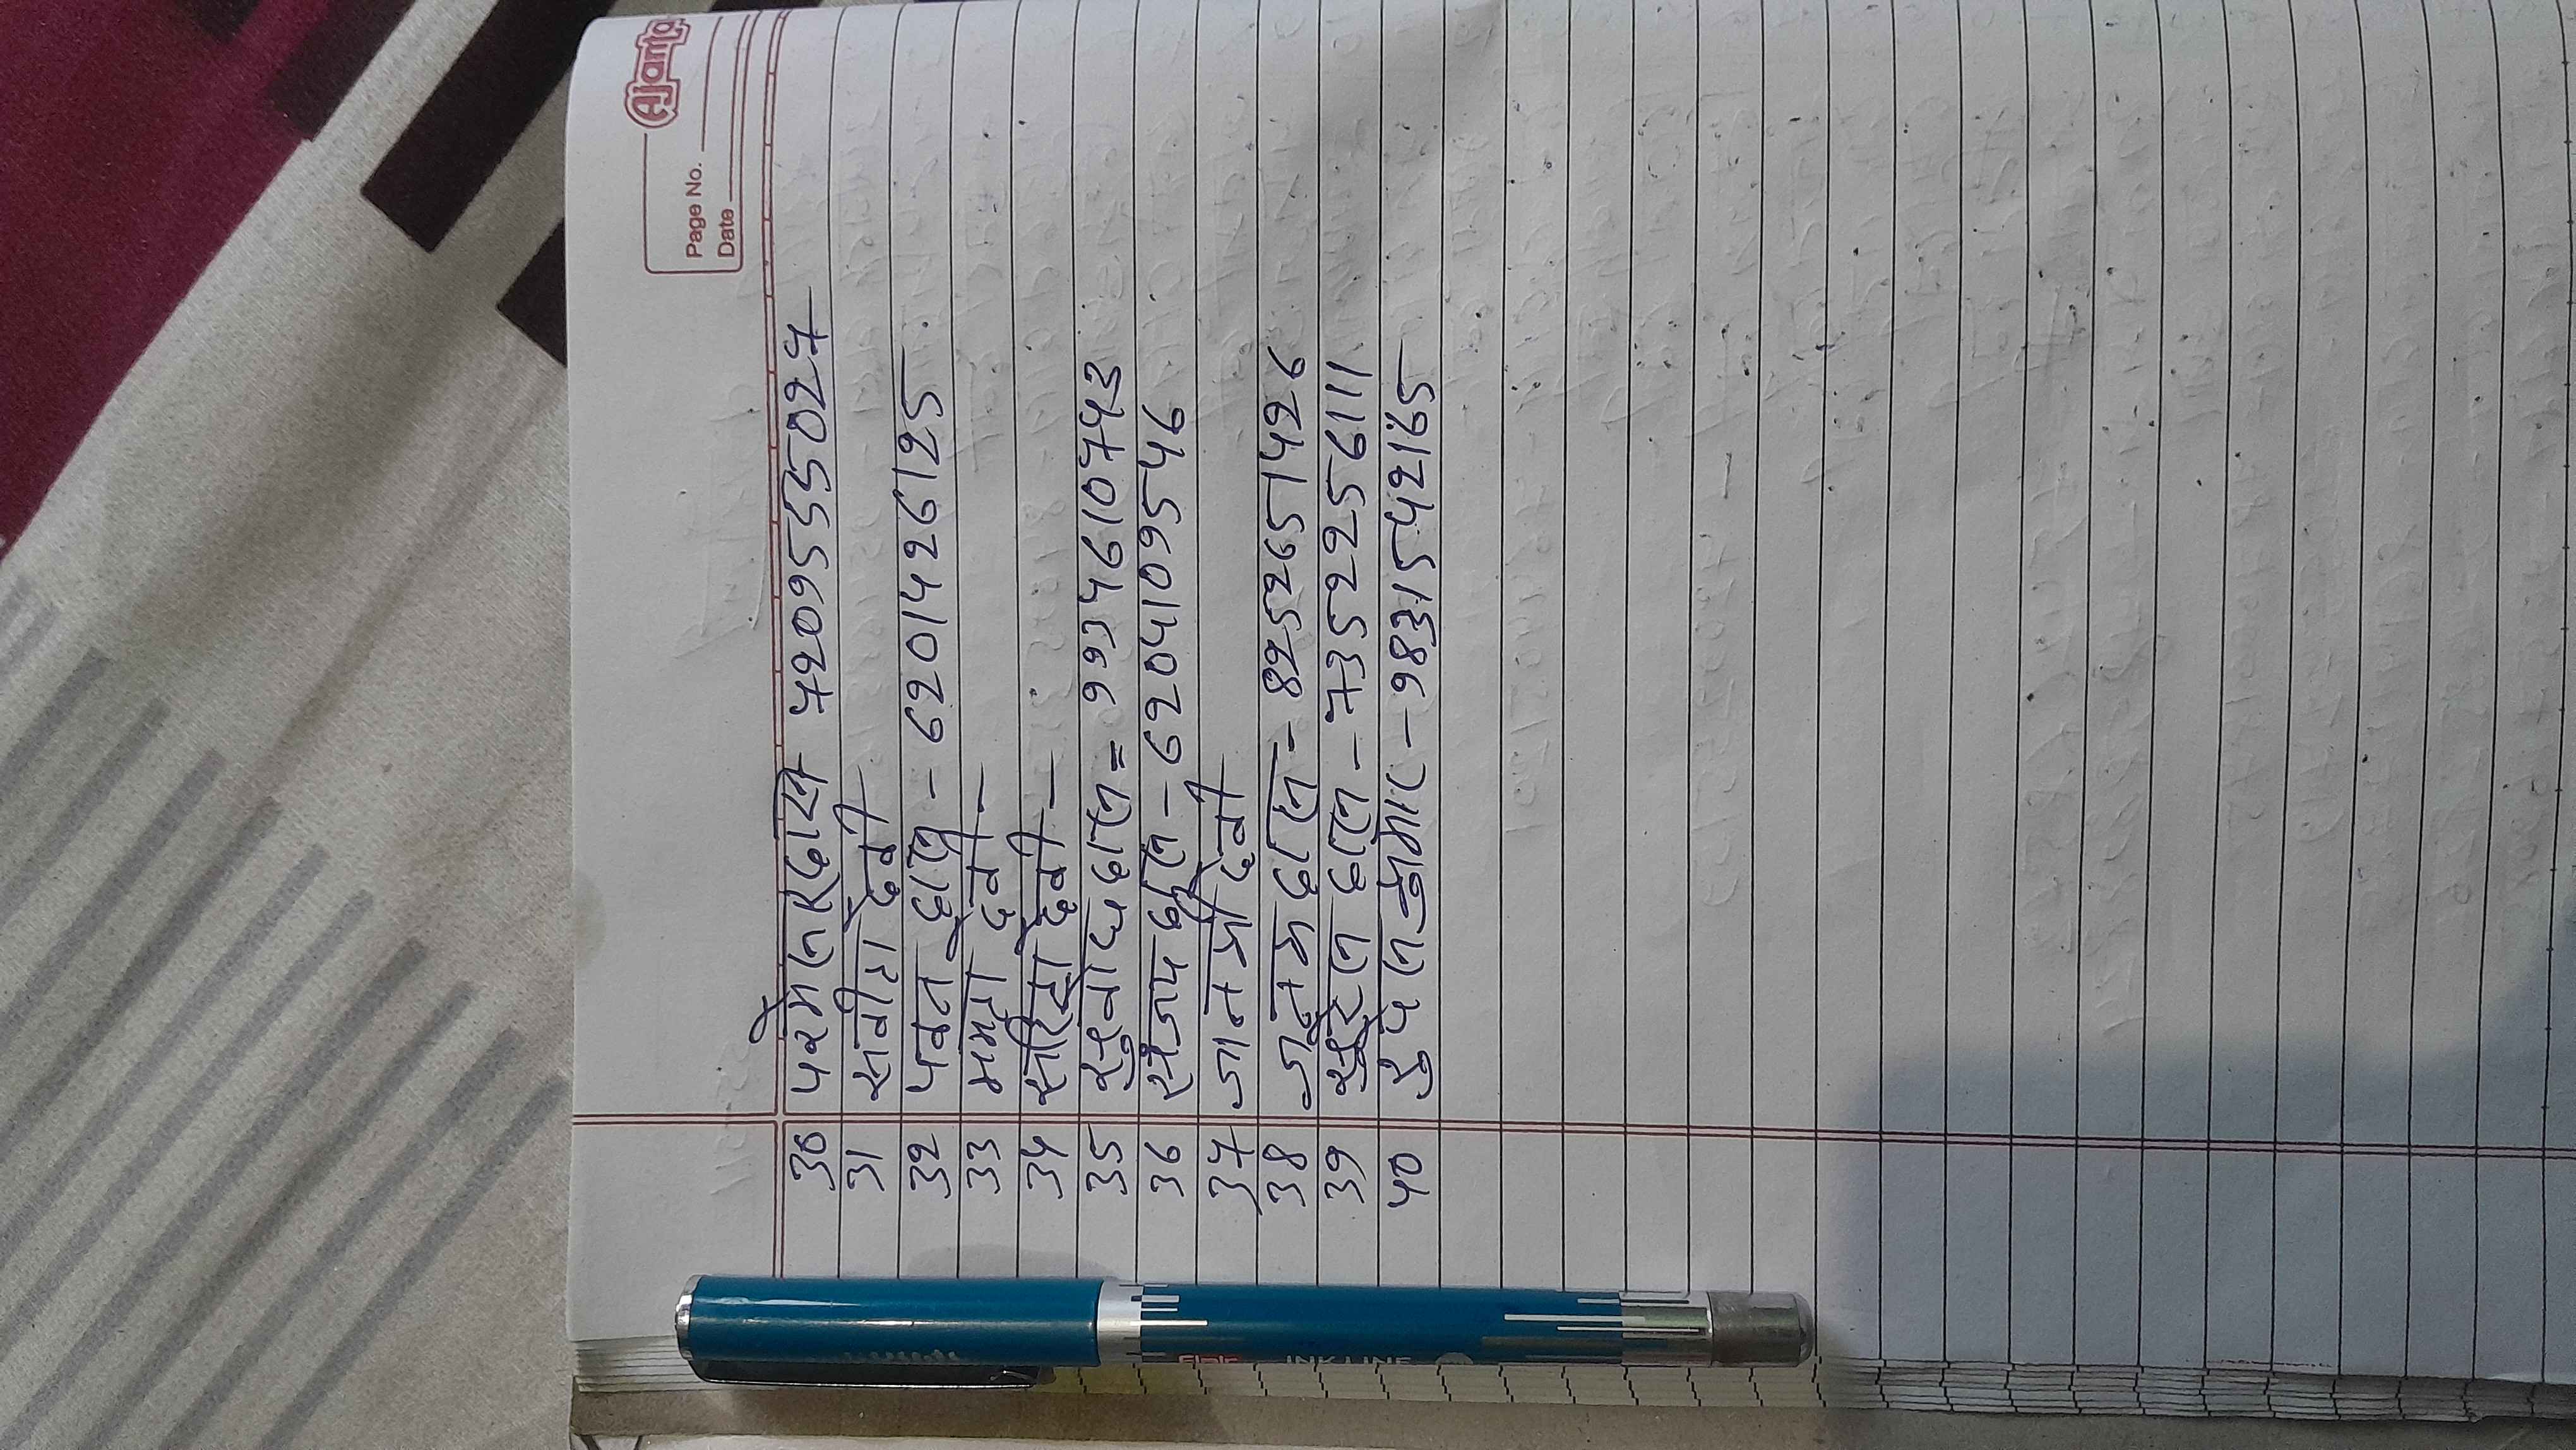 Ajanta
Page No.
Date
30 7209555027
31 सबीता देवी
32 पवन दास - 6201426125
33 ममता देवी -
34 सरिता देवी -
35 सुबोध दास = 9934610743
36 संजय दास - 6204109546
37 देवी
38 दास - 8252651426
39 सूरज दास - 7352256111
40 कुमार - 9831542165